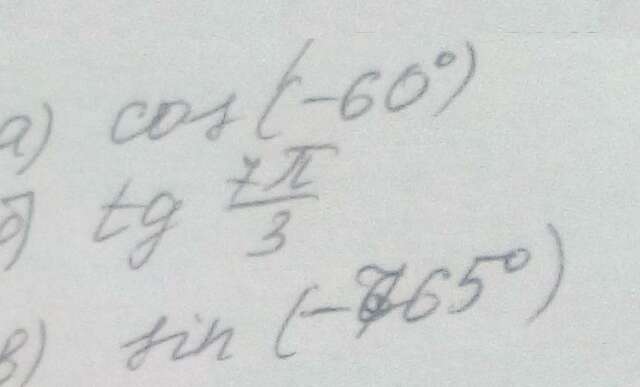 а) cos(-60°)
б) tg 7π/3
в) sin (- 65°)